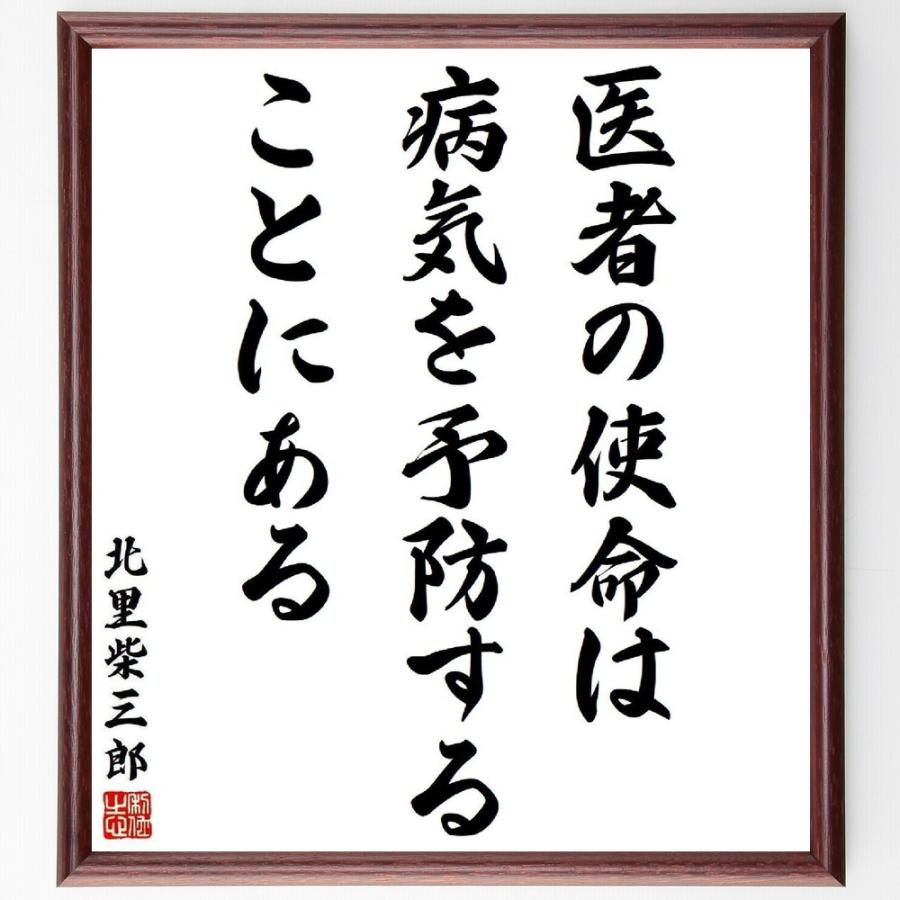 医者の使命は
病気を予防する
ことにある
北里柴三郎